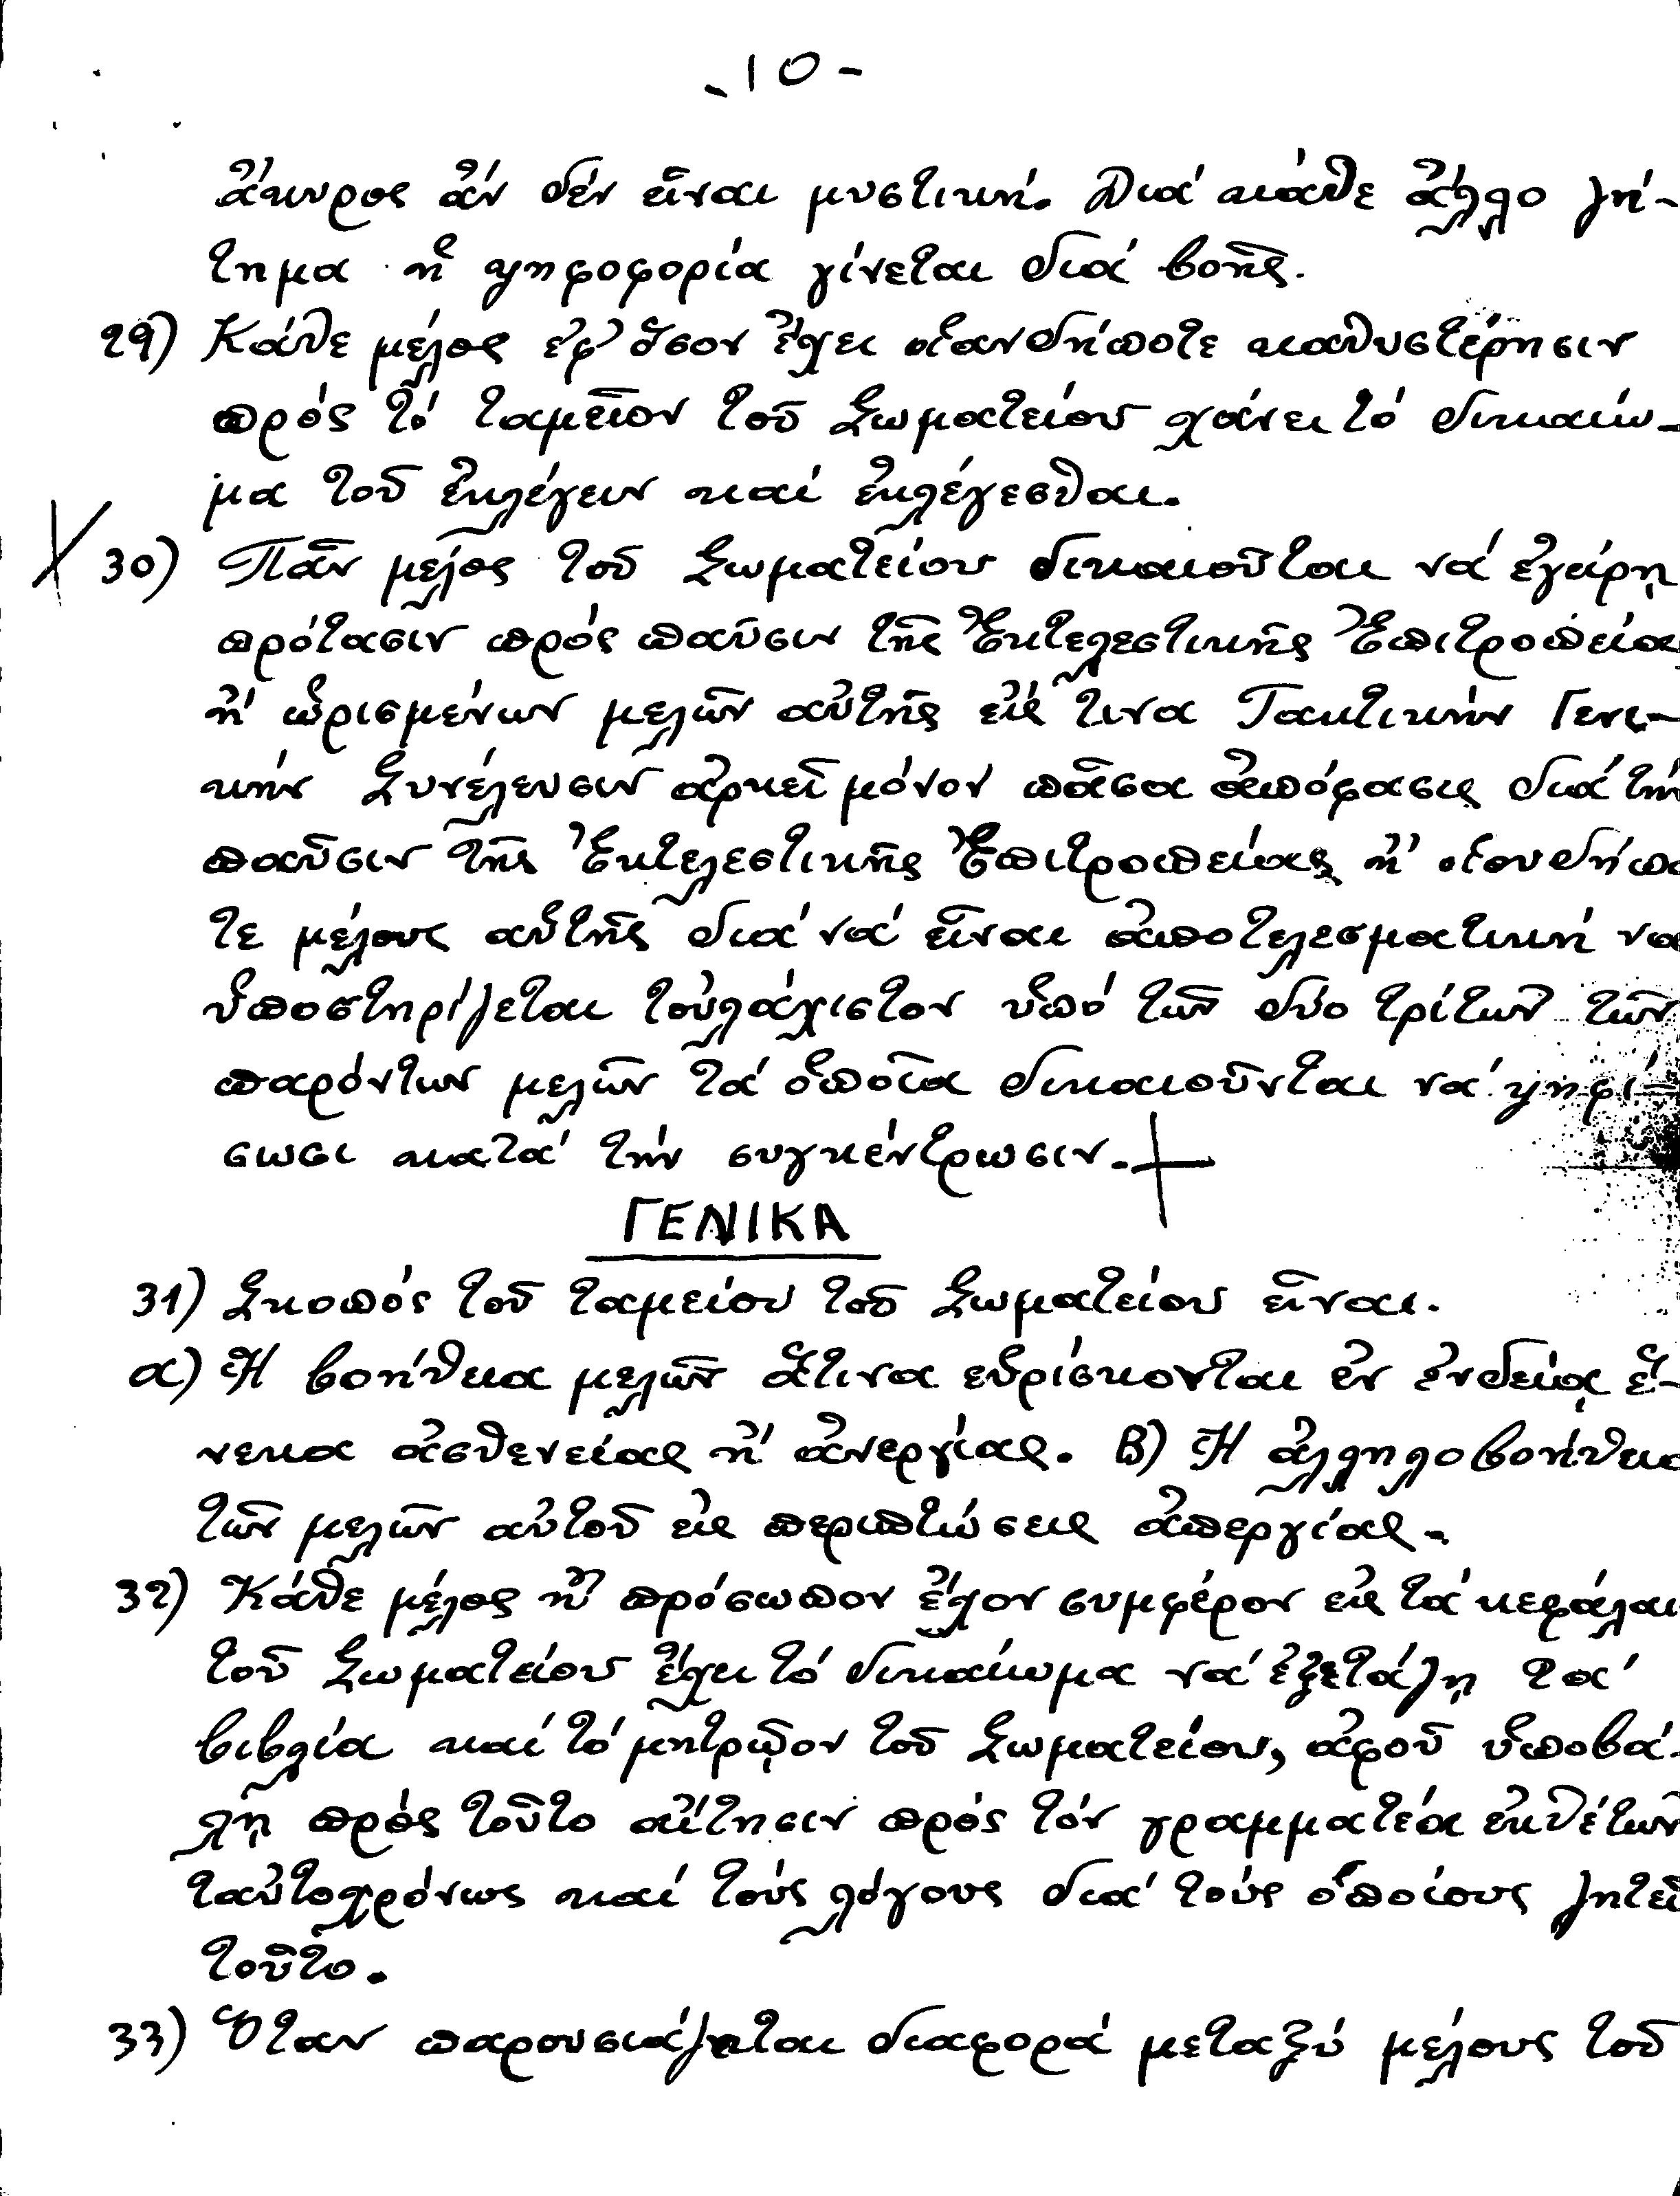 -10-
ἄκυρος ἄν δέν εἶναι μυστική. Διά κάθε ἄλλο ζή-
τημα ἡ ψηφοφορία γίνεται διά βοῆς.
29) Κάθε μέλος ἐφ' ὅσον ἔχει οἱανδήποτε καθυστέρησιν
πρός τό ταμεῖον τοῦ Σωματείου χάνει τό δικαίω-
μα τοῦ ἐκλέγειν καί ἐκλέγεσθαι.
30) Πᾶν μέλος τοῦ Σωματείου δικαιοῦται νά ἐγείρῃ
πρότασιν πρός παῦσιν τῆς Ἐκτελεστικῆς Ἐπιτροπείας
ἤ ὡρισμένων μελῶν αὐτῆς εἰς τινα Τακτικήν Γενι-
κήν Συνέλευσιν ἀρκεῖ μόνον πᾶσα ἀπόφασις διά τήν
παῦσιν τῆς Ἐκτελεστικῆς Ἐπιτροπείας ἤ οἱουδήπο
τε μέλους αὐτῆς διά νά εἶναι ἀποτελεσματική να
ὑποστηρίζεται τοὐλάχιστον ὑπό τῶν δύο τρίτων τῶν
παρόντων μελῶν τά ὁποῖα δικαιοῦνται νά ψηφί-
σωσι κατά τήν συγκέντρωσιν.
ΓΕΝΙΚΑ
31) Σκοπός τοῦ ταμείου τοῦ Σωματείου εἶναι.
α) Ἡ βοήθεια μελῶν ἅτινα εὑρίσκονται ἐν ἐνδείᾳ ἕ-
νεκα ἀσθενείας ἤ ἀνεργίας. Β) Ἡ ἀλληλοβοήθεια
τῶν μελῶν αὐτοῦ εἰς περιπτώσεις ἀπεργίας.
32) Κάθε μέλος ἤ πρόσωπον ἔχον συμφέρον εἰς τά κεφάλαι
τοῦ Σωματείου ἔχει τό δικαίωμα νά ἐξετάζῃ τά
βιβλία καί τό μητρῷον τοῦ Σωματείου, ἀφοῦ ὑποβά-
λῃ πρός τοῦτο αἴτησιν πρός τόν γραμματέα ἐκθέτων
ταὐτοχρόνως καί τούς λόγους διά τούς ὁποίους ζητεῖ
τοῦτο.
33) Ὅταν παρουσιάζηται διαφορά μεταξύ μέλους τοῦ